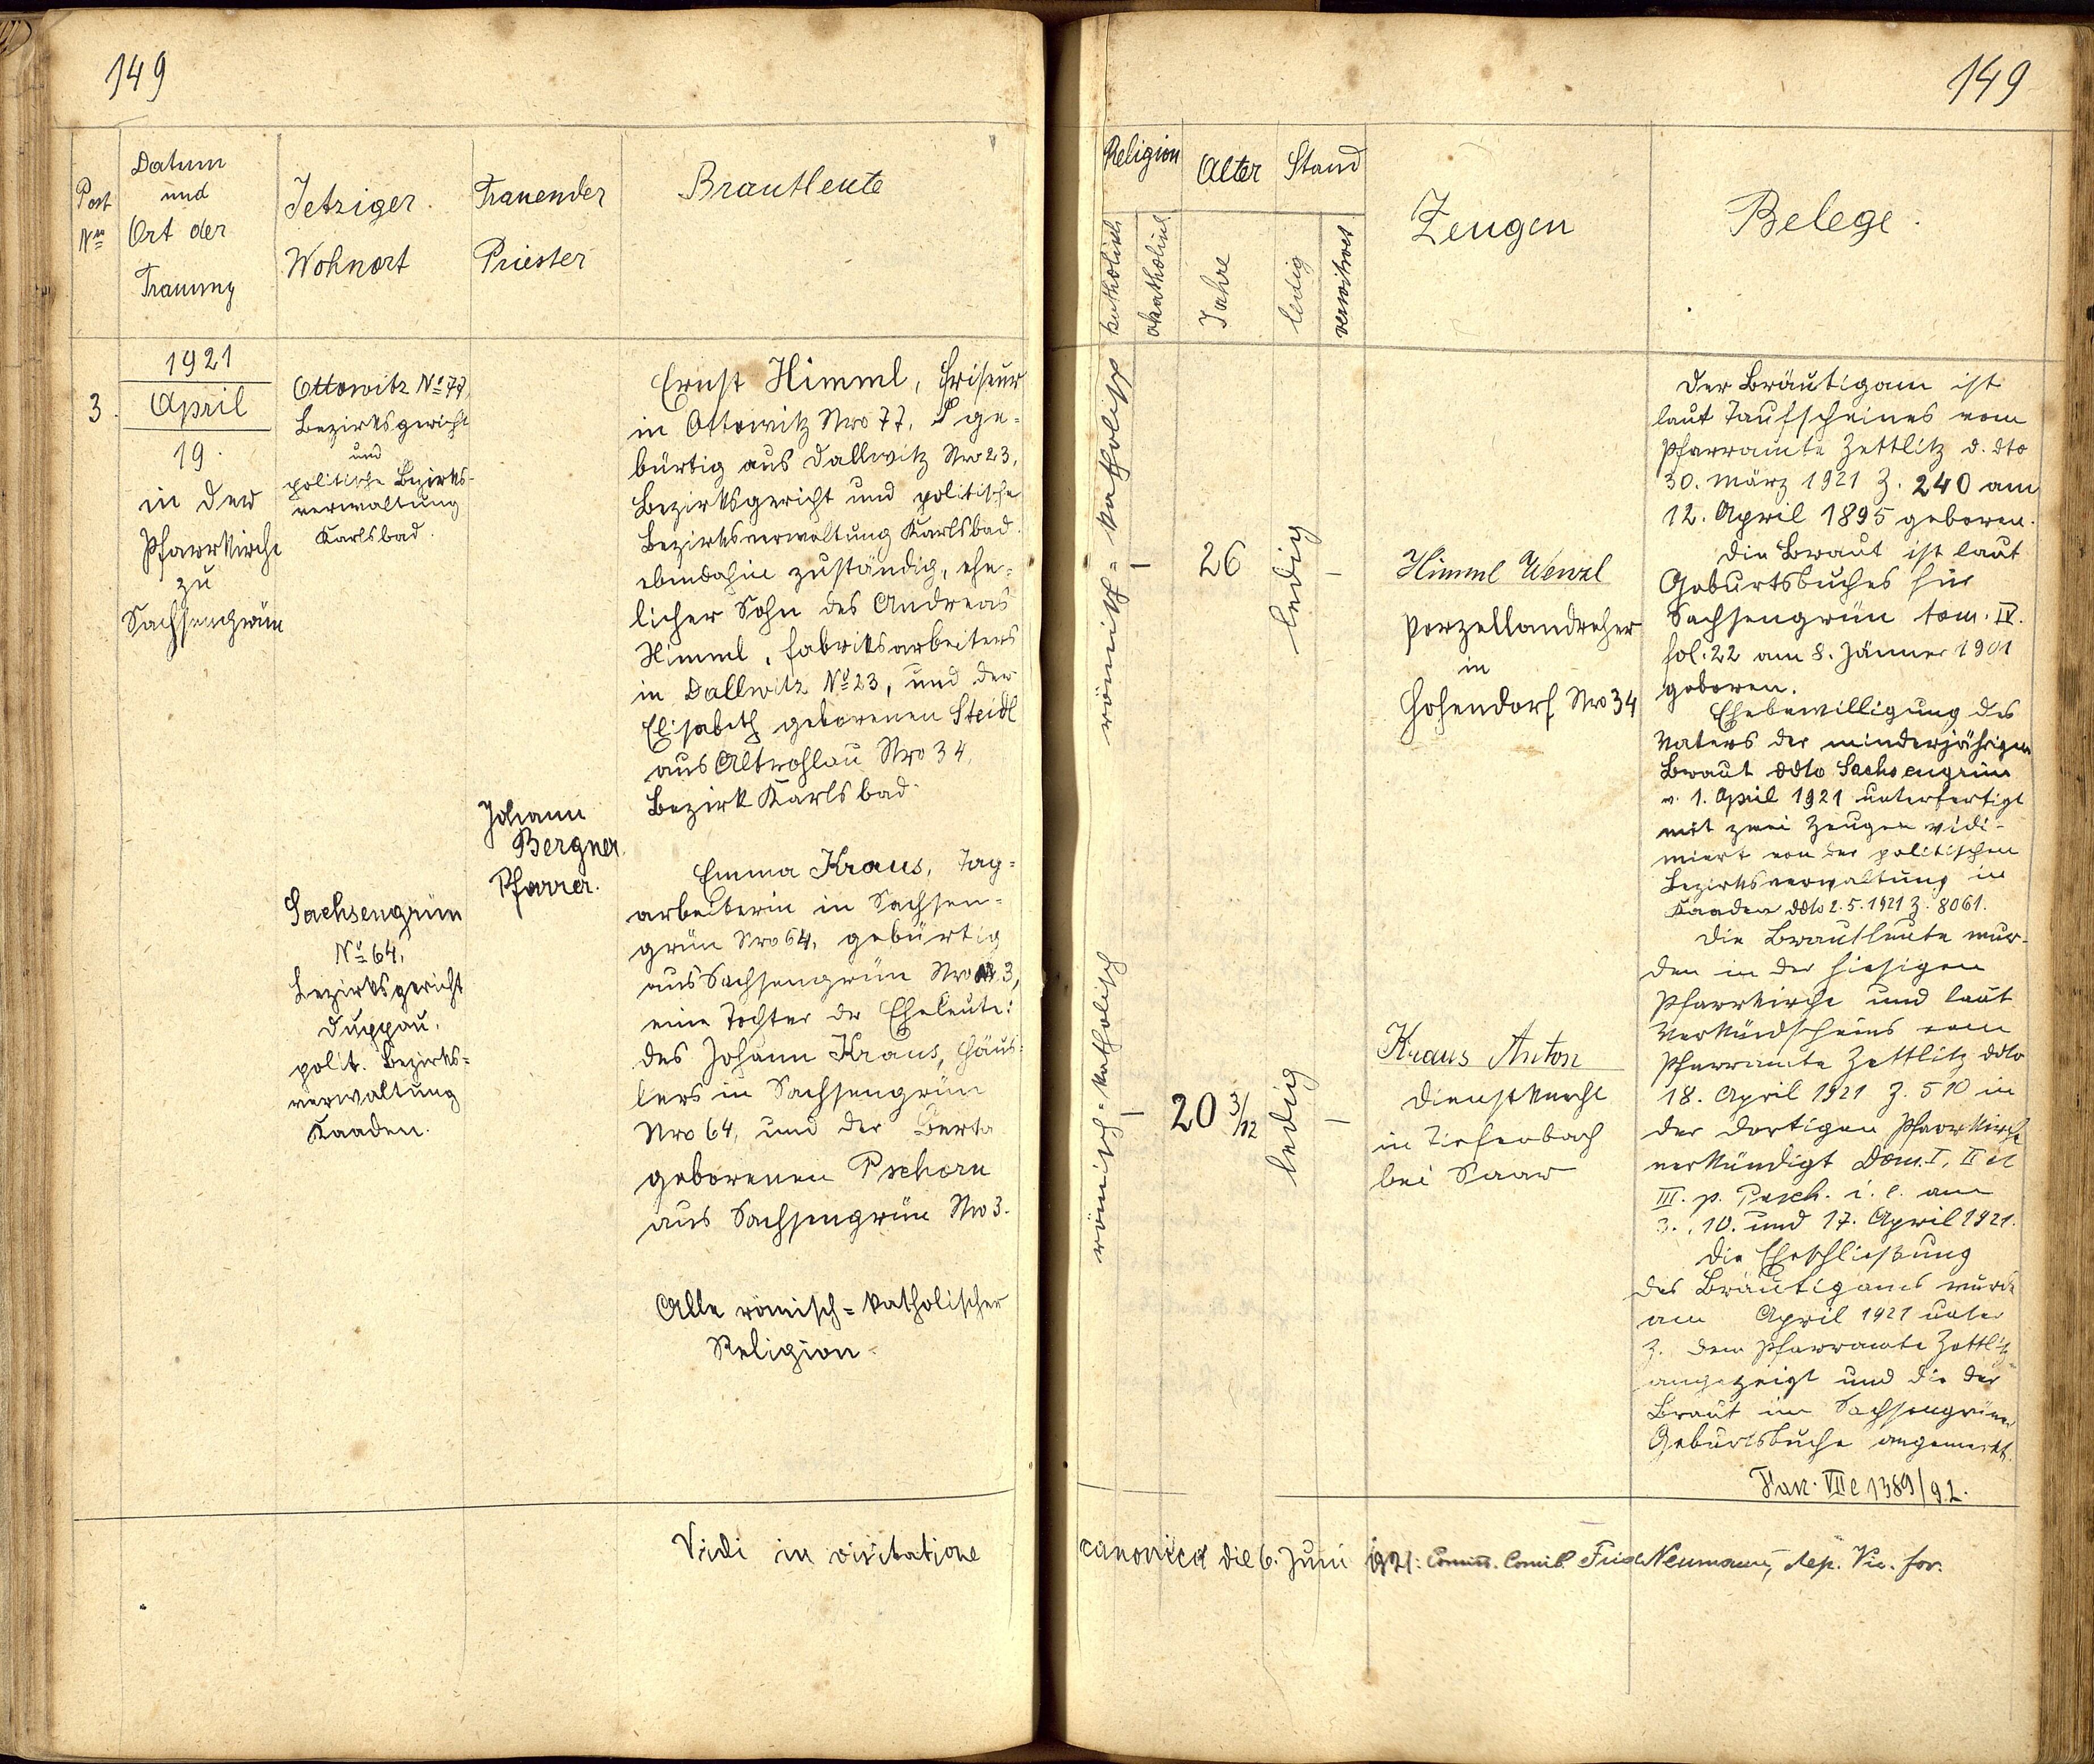 149
Post
Nro
Datum
und
Ort der
Trauung
Jetziger
Wohnort
Trauender
Priester
Brautleute
3.
1921
April
19.
in der
Pfarrkirche
zu
Sachsengrün
Ottowitz No 77,
Bezirksgericht
und
politische Bezirks-
verwaltung
Karlsbad.
Sachsengrün
No 64,
Bezirksgericht
Duppau,
polit. Bezirks-
verwaltung
Kaaden.
Johann
Bergner
Pfarrer.
Ernst Himml, Friseur
in Ottowitz Nro 77, ge-
bürtig aus Dallwitz Nro 23,
Bezirksgericht und politische
Bezirksverwaltung Karlsbad.
ebendahin zuständig, ehe-
licher Sohn des Andreas
Himml, Fabriksarbeiters
in Dallwitz No 23, und der
Elisabeth geborenen Steidl
aus Altrohlau Nro 34,
Bezirk Karlsbad.
Emma Kraus, Tag-
arbeiterin in Sachsen-
grün Nro 64, gebürtig
aus Sachsengrün Nro 3,
eine Tochter der Eheleute:
des Johann Kraus, Häus-
lers in Sachsengrün
Nro 64, und der Berta
geborenen Pschorn
aus Sachsengrün Nro 3.
Alle römisch-katholischer
Religion.
Vidi in visitatione
149
Religion
Alter
Stand
katholisch
akatholisch
Jahre
ledig
verwitwet
Zeugen
Belege.
römisch-katholisch
–
26
ledig
–
Himml Wenzl
Porzellandreher
in
Hohendorf Nro 34
römisch-katholisch
–
20 3/12
ledig
–
Kraus Anton
Dienstknecht
in Tiefenbach
bei Saar
Der Bräutigam ist
laut Taufscheines vom
Pfarramte Zettlitz d. dto
30. März 1921 Z. 240 am
12. April 1895 geboren.
Die Braut ist laut
Geburtsbuches für
Sachsengrün tom. IV.
fol. 22 am 8. Jänner 1901
geboren.
Ehebewilligung des
Vaters der minderjährigen
Braut ddto Sachsengrün
v. 1. April 1921 unterfertigt
mit zwei Zeugen vidi-
miert von der politischen
Bezirksverwaltung in
Kaaden ddto 2.5.1921 Z. 8061.
Die Brautleute wur-
den in der hiesigen
Pfarrkirche und laut
Verkündscheins vom
Pfarramte Zettlitz ddto
18. April 1921 Z. 510 in
der dortigen Pfarrkirche
verkündigt Dom. I, II et
III. p. Pasch. i. e. am
3., 10. und 17. April 1921.
Die Eheschließung
des Bräutigams wurde
am April 1921 unter
Z. dem Pfarramte Zettlitz
angezeigt und die der
Braut im Sachsengrüner
Geburtsbuche angemerkt.
VII e 1389/92.
canonica die 6. Juni 1921: Neumann, dep. Vic. for.